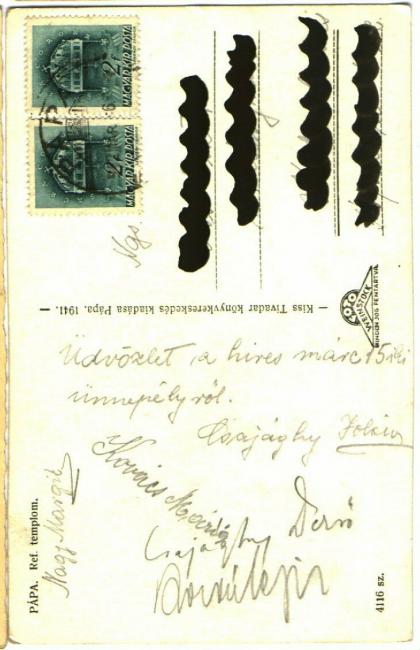 MAGYAR KIR. POSTA
2f
MAGYAR KIR. POSTA
2f
Ngs.
— Kiss Tivadar könyvkereskedés kiadása Pápa, 1941. —
FOTO
WEINSTOCK
MINDEN JOG FENTARTVA
Üdvözlet a híres márc 15iki
ünnepélyről.
Csajághy Jolán
Kovács Mária
Csajághy Dezső
Nagy Margit
PÁPA. Ref. templom.
4116 sz.